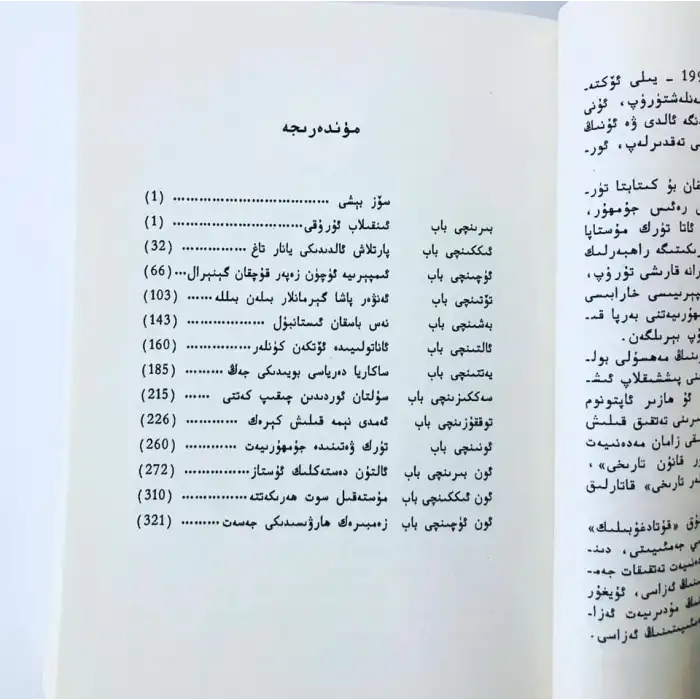 مۇندەرىجە
سۆز بېشى ................................ (1)
بىرىنچى باب ئىنقىلاب ئۇرۇقى .......................... (1)
ئىككىنچى باب پارتلاش ئالدىدىكى يانار تاغ ............... (32)
ئۈچىنچى باب ئىمپېرىيە ئۈچۈن زەپەر قۇچقان گېنېرال... (66)
تۆتىنچى باب ئەنۋەر پاشا گېرمانلار بىلەن بىللە...... (103)
بەشىنچى باب نەس باسقان ئىستانبۇل .................. (143)
ئالتىنچى باب ئاناتولىيىدە ئۆتكەن كۈنلەر ............... (160)
يەتتىنچى باب ساكاريا دەرياسى بويىدىكى جەڭ ......... (185)
سەككىزىنچى باب سۇلتان ئوردىدىن چىقىپ كەتتى ...... (215)
توققۇزىنچى باب ئەمدى نېمە قىلىش كېرەك ............ (226)
ئونىنچى باب تۈرك ۋەتىنىدە جۇمھۇرىيەت ............ (260)
ئون بىرىنچى باب ئالتۇن دەستەكلىك ئۇستاز............... (272)
ئون ئىككىنچى باب مۇستەقىل سوت ھەرىكەتتە............... (310)
ئون ئۈچىنچى باب زەمبىرەك ھارۋىسىدىكى جەسەت ......... (321)
199 - يىلى ئۆكتە-
ئالدى ۋە ئۇنىڭ
ى تەقدىرلەپ، ئور-
بۇ كىتابتا تۈر-
رەئىس جۇمھۇر،
ئاتا تۈرك مۇستاپا
راھبەرلىك
قارشى تۇرۇپ،
خارابىسى
بەرپا قى-
بېرىلگەن.
مەھسۇلى بول-
پىششىقلاپ ئىش-
ئۇ ھازىر ئاپتونوم
تەتقىق قىلىش
زامان مەدەنىيەت
قانۇن تارىخى»،
تارىخى» قاتارلىق
«قۇتادغۇبىلىك»
جەمئىيىتى، دىن-
تەتقىقات جەم-
ئەزاسى، ئۇيغۇر
مۇدىرىيەت ئەزا-
ئەزاسى.